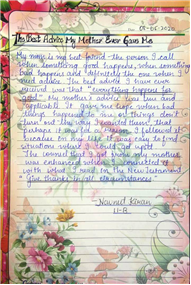 09-05-2020
The Best Advice My Mother Ever Gave Me
My mom is my best friend - the person I call
when something good happens, when something
bad happens and definitely the one when I
need advice. The best advice I have ever
received was that "everything happens for
good". My mother's advice was and
applicable. It gave me hope when bad
things happened to me or things don't
turn out the way I wanted them, that
perhaps it was for a reason. I followed it
because on my life it was easy to find
situations where I could apply it.
The counsel that I got from my mother,
was enhanced when I connected it
with what I read in The New Testament
"Give thanks in all circumstances"
Navneet Kiran
11-A